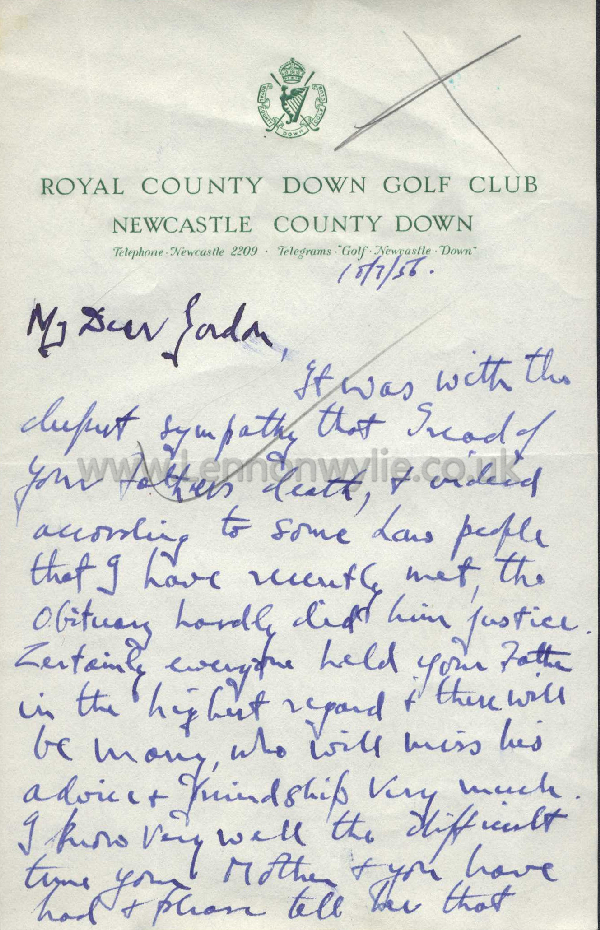 DOWN
ROYAL COUNTY DOWN GOLF CLUB
NEWCASTLE COUNTY DOWN
Telephone · Newcastle 2209 · Telegrams · "Golf · Newcastle · Down"
18/7/56.
My Dear Gordon,
It was with the
deepest sympathy that I read of
your Fathers death, & indeed
www.Lennonwylie.co.uk
according to some Law people
that I have recently met, the
Obituary hardly did him justice.
Certainly everyone held your Father
in the highest regard & there will
be many, who will miss his
advice & friendship very much.
I know very well the difficult
time your Mother & you have
had & please tell her that